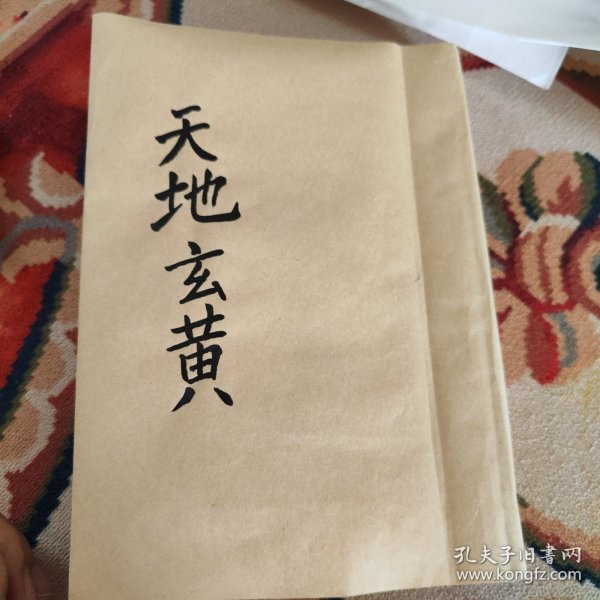 天地玄黄
孔夫子旧書网
www.kongfz.com